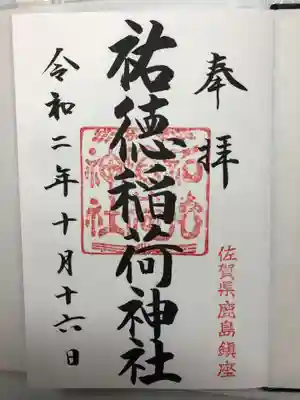 奉拝
佐賀県鹿島鎮座
祐徳稲荷神社
令和二年十月十六日